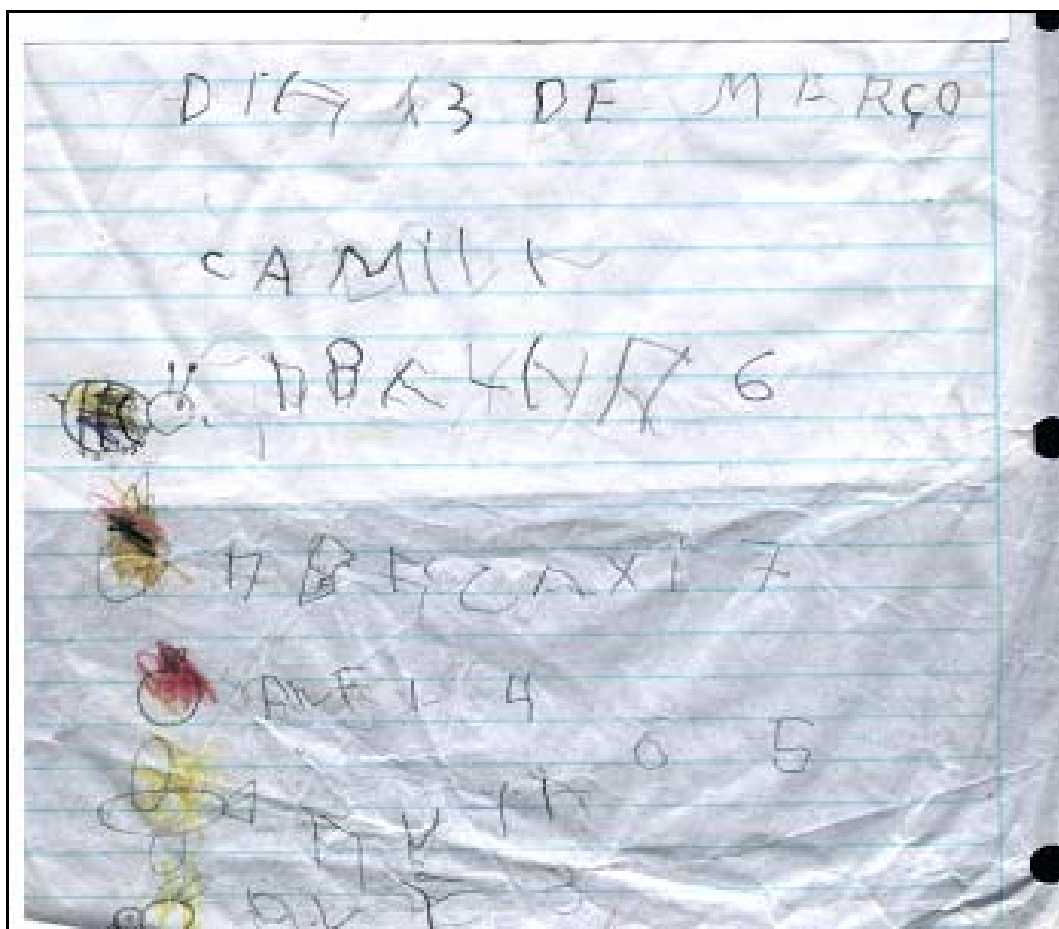 DIA 13 DE MARÇO
CAMILA
ABELHA 6
ABACAXI 7
ANEL 4
O 5